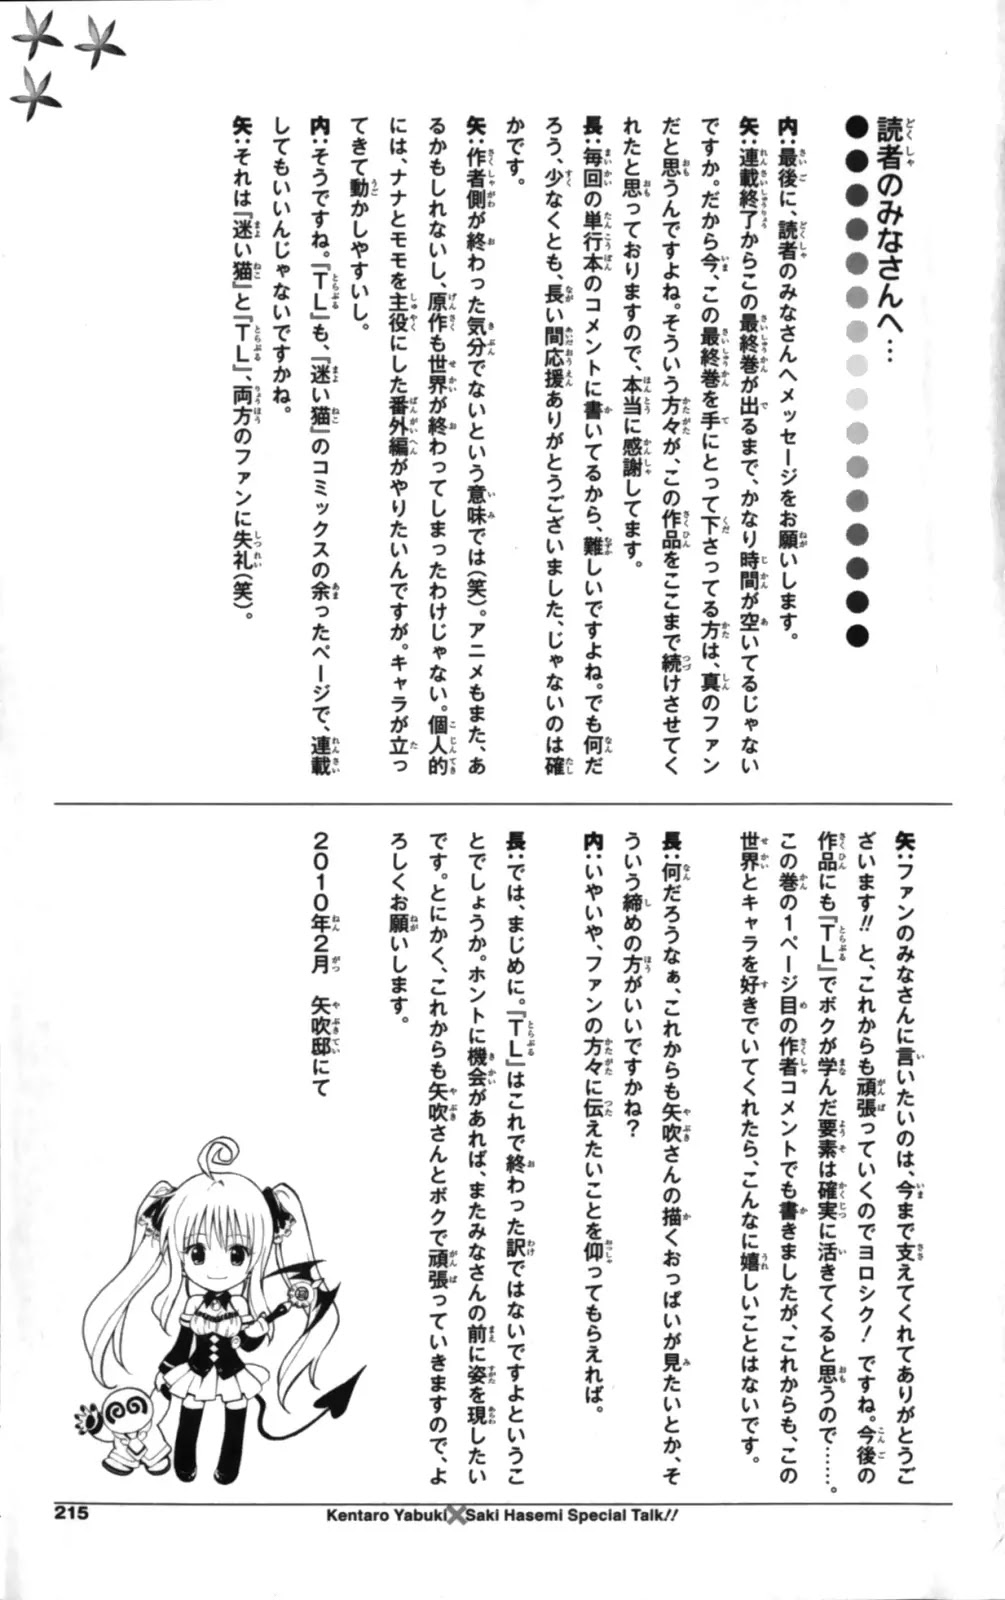 読者のみなさんへ…
内：最後に、読者のみなさんへメッセージをお願いします。
矢：連載終了からこの最終巻が出るまで、かなり時間が空いてるじゃない
ですか。だから今、この最終巻を手にとって下さってる方は、真のファン
だと思うんですよね。そういう方々が、この作品をここまで続けさせてく
れたと思っておりますので、本当に感謝してます。
長：毎回の単行本のコメントに書いてるから、難しいですよね。でも何だ
ろう、少なくとも、長い間応援ありがとうございました、じゃないのは確
かです。
矢：作者側が終わった気分でないという意味では（笑）。アニメもまた、あ
るかもしれないし、原作も世界が終わってしまったわけじゃない。個人的
には、ナナとモモを主役にした番外編がやりたいんですが。キャラが立っ
てきて動かしやすいし。
内：そうですね。『TL』も、『迷い猫』のコミックスの余ったページで、連載
してもいいんじゃないですかね。
矢：それは『迷い猫』と『TL』、両方のファンに失礼（笑）。
矢：ファンのみなさんに言いたいのは、今まで支えてくれてありがとうご
ざいます!! と、これからも頑張っていくのでヨロシク! ですね。今後の
作品にも『TL』でボクが学んだ要素は確実に活きてくると思うので……。
この巻の1ページ目の作者コメントでも書きましたが、これからも、この
世界とキャラを好きでいてくれたら、こんなに嬉しいことはないです。
長：何だろうなぁ、これからも矢吹さんの描くおっぱいが見たいとか、そ
ういう締めの方がいいですかね?
内：いやいや、ファンの方々に伝えたいことを仰ってもらえれば。
長：では、まじめに。『TL』はこれで終わった訳ではないですよというこ
とでしょうか。ホントに機会があれば、またみなさんの前に姿を現したい
です。とにかく、これからも矢吹さんとボクで頑張っていきますので、よ
ろしくお願いします。
2010年2月　矢吹邸にて
215
Kentaro Yabuki×Saki Hasemi Special Talk!!